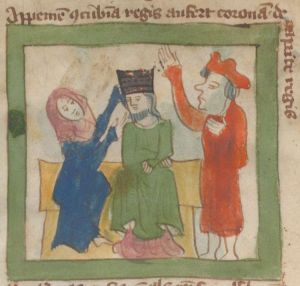 Appemē ꝯcubīa regis aufert coronā de
capite regis